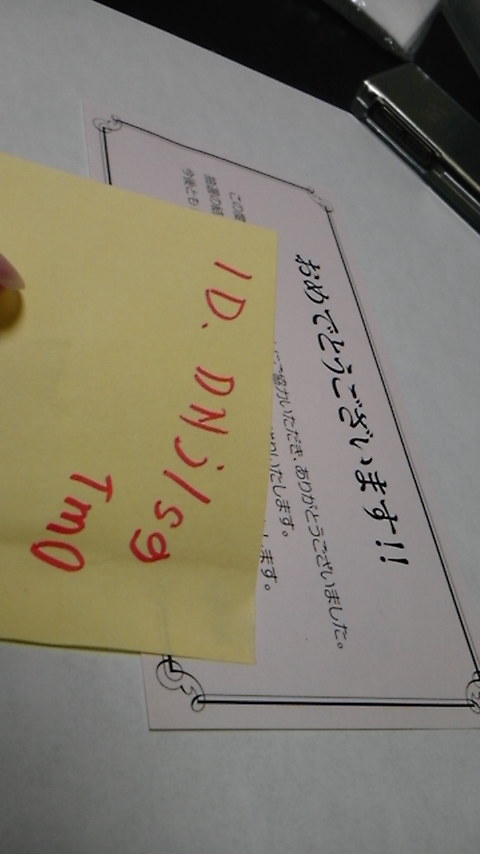 おめでとうございます!!
この度
ご協力いただき、ありがとうございました。
いたします。
今後とも
します。
ID. DNj/sg
Tm0